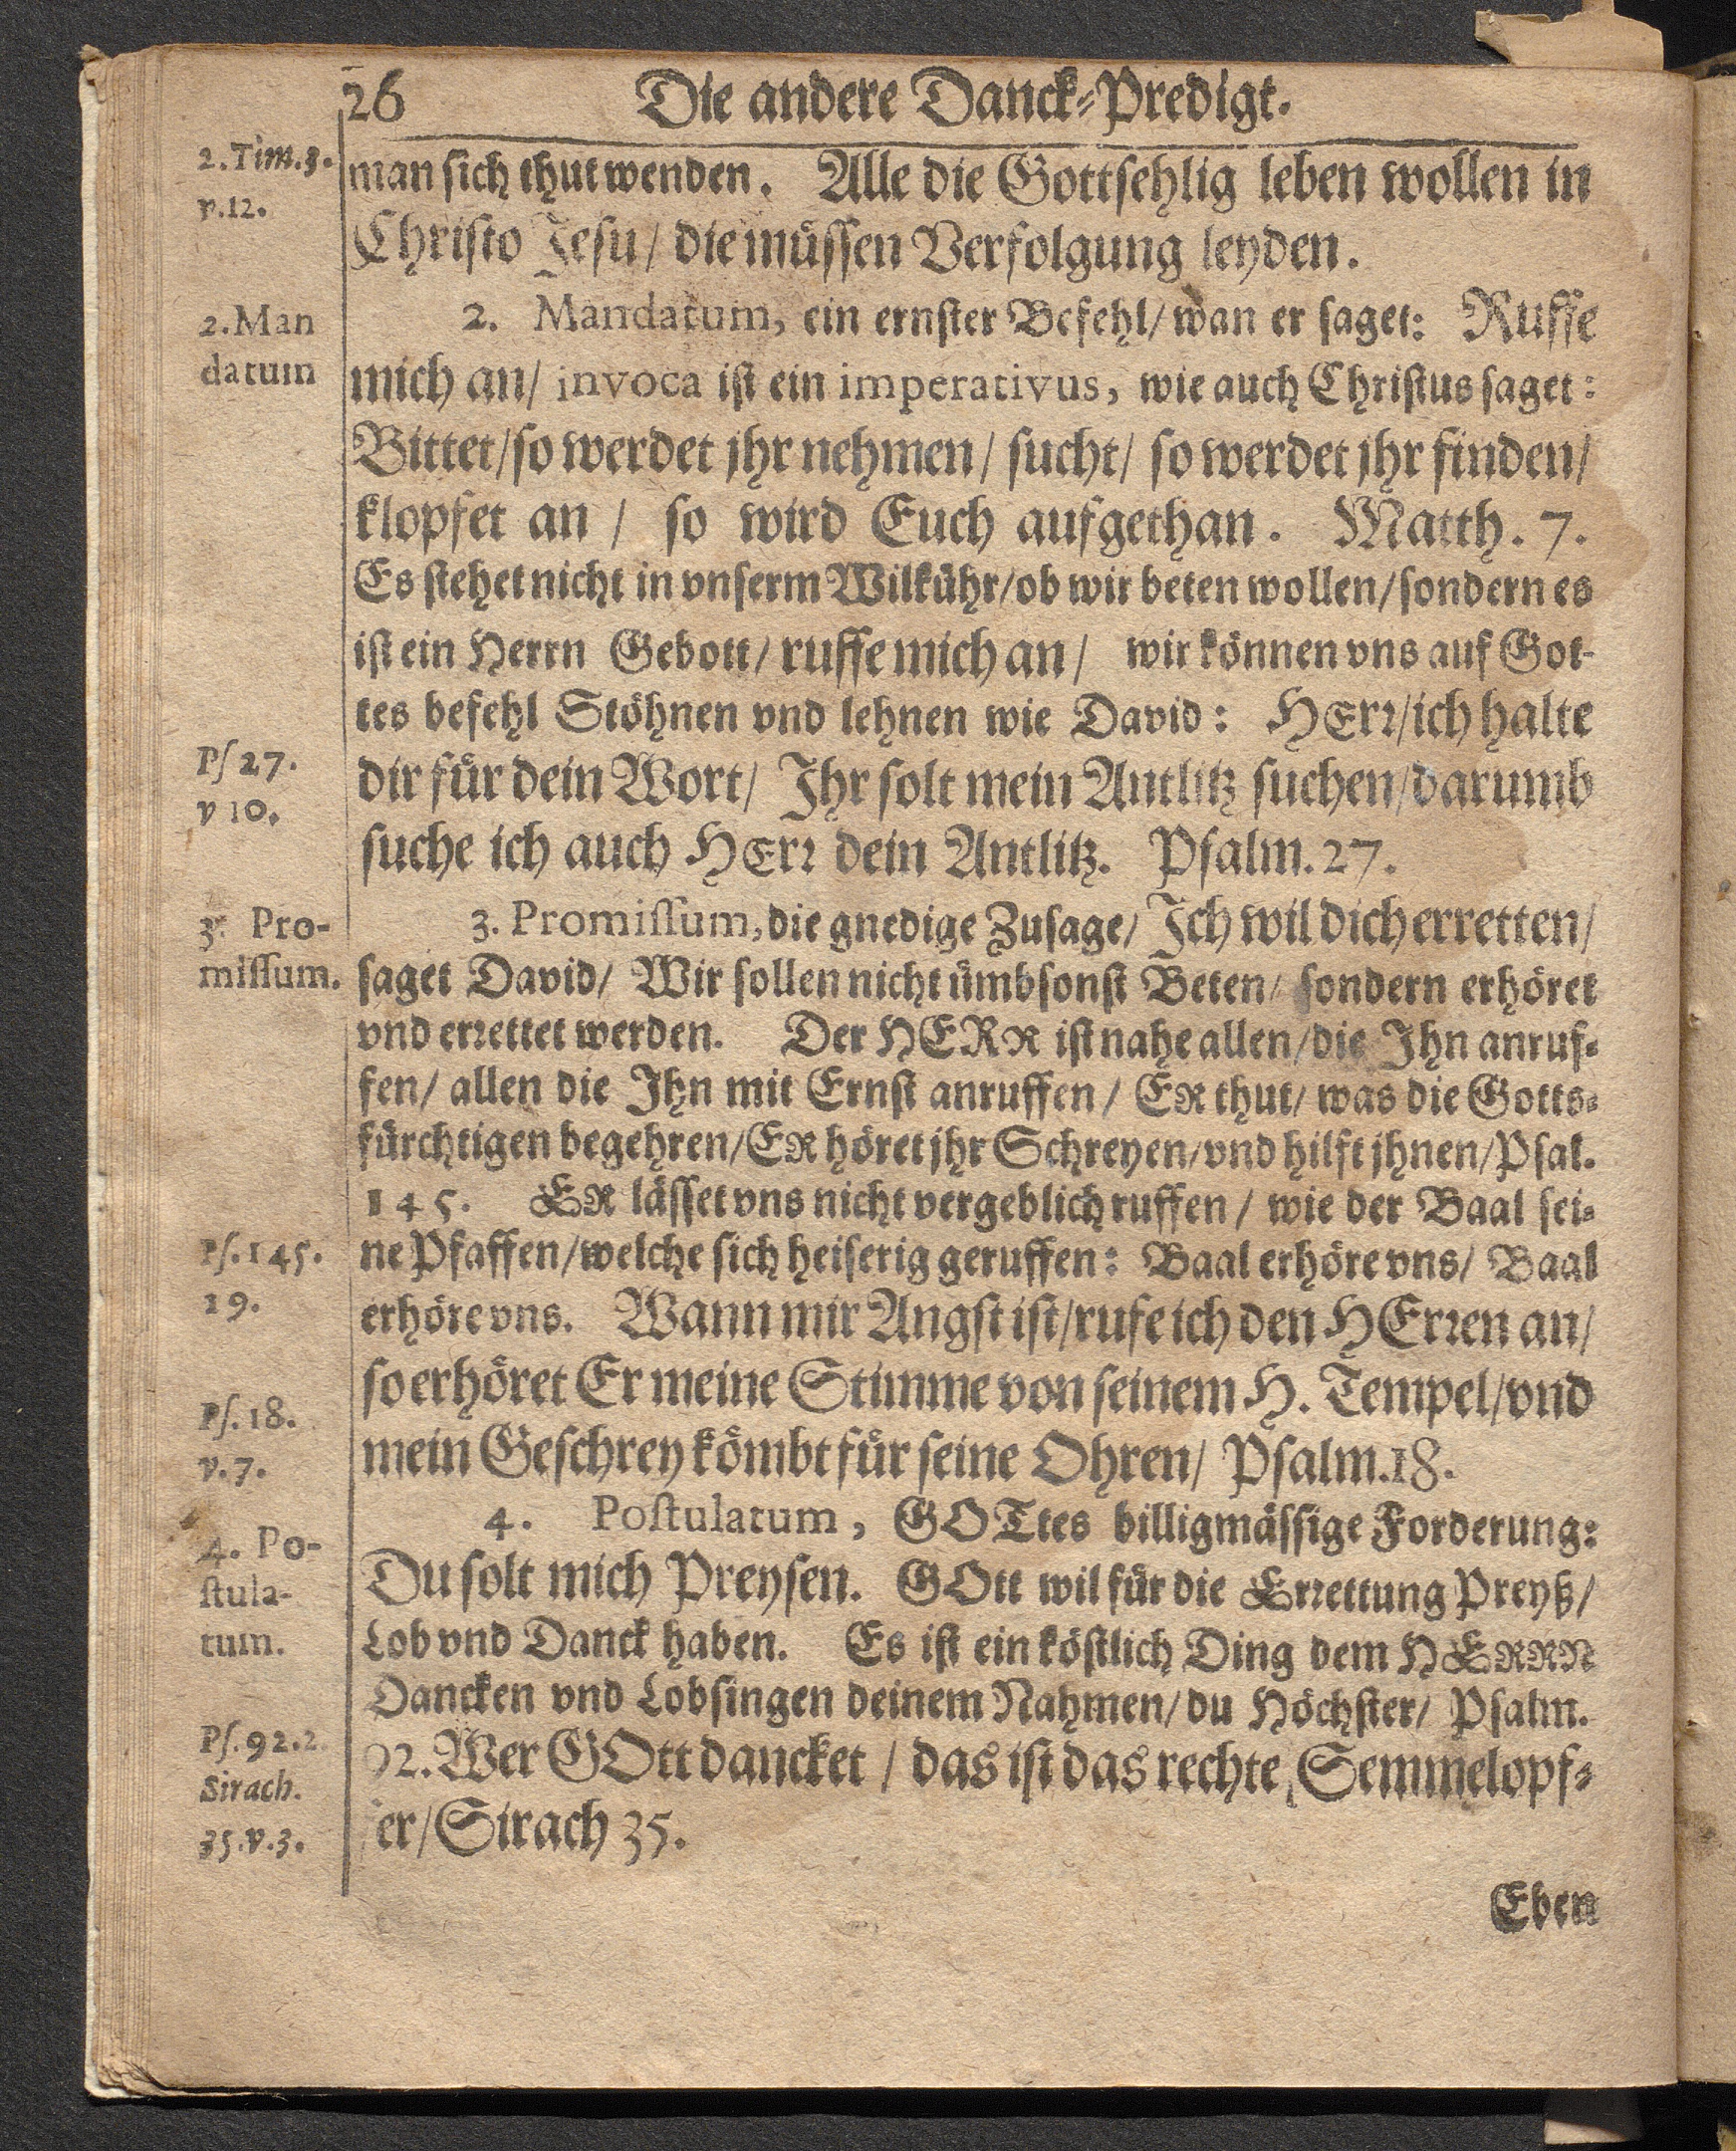 26 Die andere Danck-Predigt.
2. Tim. 3.
v. 12.
man sich thut wenden. Alle die Gottsehlig leben wollen in
Christo Jesu/ die müssen Verfolgung leyden.
2. Man
datum
2. Mandatum, ein ernster Befehl/ wan er saget: Ruffe
mich an/ invoca ist ein imperativus, wie auch Christus saget:
Bittet/ so werdet jhr nehmen/ sucht/ so werdet jhr finden/
klopfet an / so wird Euch aufgethan. Matth. 7.
Es stehet nicht in vnserm Wilkühr/ ob wir beten wollen/ sondern es
ist ein Herrn Gebott/ ruffe mich an/ wir können vns auf Got-
tes befehl Stöhnen vnd lehnen wie David: HErr/ ich halte
Ps 27.
v 10.
dir für dein Wort/ Ihr solt mein Antlitz suchen/ darumb
suche ich auch HErr dein Antlitz. Psalm. 27.
3. Pro-
missum.
3. Promissum, die gnedige Zusage/ Ich wil dich erretten/
saget David/ Wir sollen nicht ümbsonst Beten/ sondern erhöret
vnd errettet werden. Der HERR ist nahe allen/ die Ihn anruf-
fen/ allen die Ihn mit Ernst anruffen/ ER thut/ was die Gotts-
fürchtigen begehren/ ER höret jhr Schreyen/ vnd hilft jhnen/ Psal.
145. ER lässet vns nicht vergeblich ruffen / wie der Baal sei-
Ps. 145.
19.
ne Pfaffen/ welche sich heiserig geruffen: Baal erhöre vns/ Baal
erhöre vns. Wann mir Angst ist/ rufe ich den HErren an/
so erhöret Er meine Stimme von seinem H. Tempel/ vnd
Ps. 18.
v. 7.
mein Geschrey kömbt für seine Ohren/ Psalm. 18.
4. Po-
stula-
tum.
4. Postulatum, GOTtes billigmässige Forderung:
Du solt mich Preysen. GOtt wil für die Errettung Preyß/
Lob vnd Danck haben. Es ist ein köstlich Ding dem HERRN
Dancken vnd Lobsingen deinem Nahmen/ du Höchster/ Psalm.
Ps. 92. 2.
Sirach.
35. v. 3.
92. Wer GOtt dancket / das ist das rechte Semmelopf-
er/ Sirach 35.
Eben